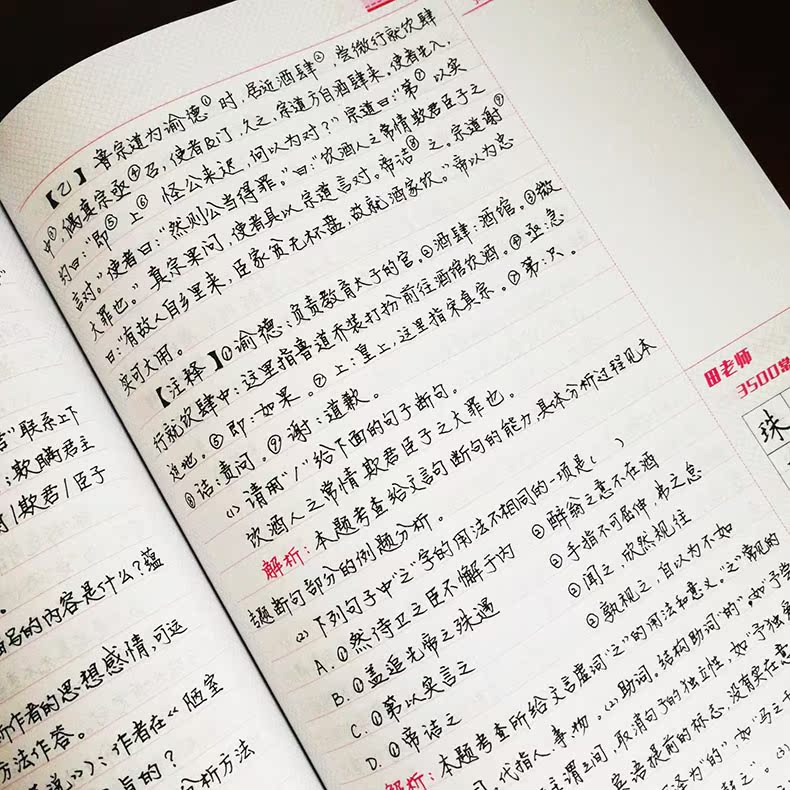 【乙】鲁宗道为谕德①时,居近酒肆②,尝微行就饮肆
中③,偶真宗亟④召,使者及门,久之,宗道方自酒肆来。使者先入,
约曰:“即⑤上⑥怪公来迟,何以为对?”宗道曰:“第⑦以实
言对。”使者曰:“然则公当得罪。”曰:“饮酒人之常情欺君臣子之
大罪也。”真宗果问,使者具以宗道言对。帝诘⑧之。宗道谢⑨
曰:“有故人自乡里来,臣家贫无杯盘,故就酒家饮。”帝以为忠
实可大用。
【注释】①谕德:负责教育太子的官。②酒肆:酒馆。③微
行就饮肆中:这里指鲁道乔装打扮前往酒馆饮酒。④亟:急
迫地。⑤即:如果。⑦上:皇上,这里指宋真宗。⑦第:只。
⑧诘:责问。⑨谢:道歉。
(1)请用“/”给下面的句子断句。
饮酒人之常情欺君臣子之大罪也。
解析:本题考查给文言句断句的能力,具体分析过程见本
专题断句部分的例题分析。
(2)下列句子中“之”字的用法不相同的一项是( )
A.①然侍卫之臣不懈于内 ②醉翁之意不在酒
B.①盖追先帝之殊遇 ②手指不可屈伸,弗之怠
C.①第以实言之 ②闻之,欣然规往
D.①帝诘之 ②孰视之,自以为不如
解析:本题考查所给文言虚词“之”的用法和意义。“之”常见的
代指人、事物。(2)助词。结构助词“的”,如“予尝
主谓之间,取消句子的独立性,如“予独爱
宾语提前的标志,没有实在意
译为“的”,如“马之千
言”联系上下
;欺瞒君主
/欺君/臣子
写的内容是什么?蕴
作者的思想感情,可运
方法作答。
说》):作者在《陋室
的?
分析方法
田老师
3500常
珠